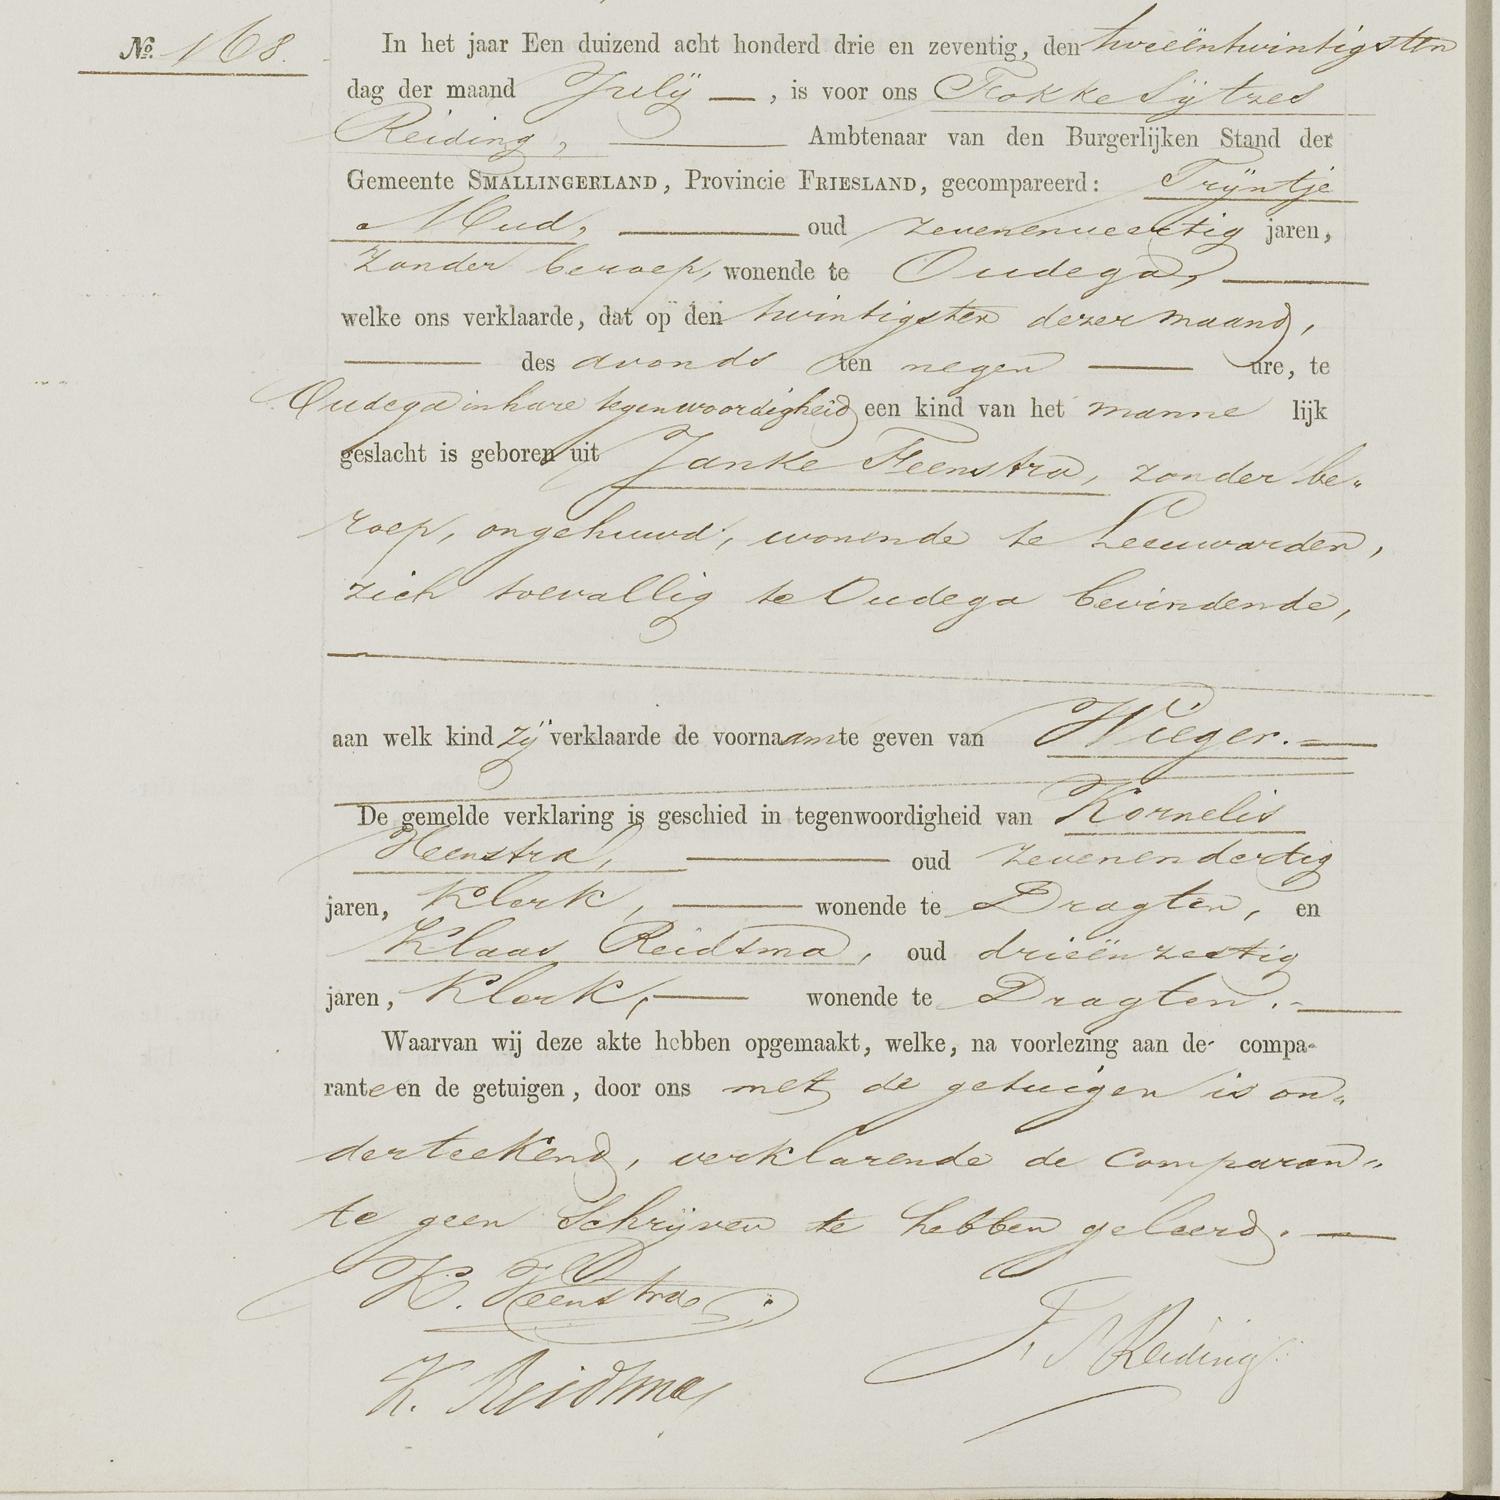 No. 168.
In het jaar Een duizend acht honderd drie en zeventig, den tweeëntwintigsten
dag der maand Julij —, is voor ons Fokke Sijtzes
Reiding, — Ambtenaar van den Burgerlijken Stand der
Gemeente SMALLINGERLAND, Provincie FRIESLAND, gecompareerd: Trijntje
Mud, — oud zevenenveertig jaren,
zonder beroep, wonende te Oudega, —
welke ons verklaarde, dat op den twintigsten dezer maand,
— des avonds ten negen — ure, te
Oudega in hare tegenwoordigheid een kind van het mannelijk
geslacht is geboren uit Janke Feenstra, zonder be„
roep, ongehuwd, wonende te Leeuwarden,
zich toevallig te Oudega bevindende,
aan welk kind zij verklaarde de voornaam te geven van Wieger. —
De gemelde verklaring is geschied in tegenwoordigheid van Kornelis
Heenstra, — oud zevenendertig
jaren, Klerk, — wonende te Dragten, en
Klaas Reidsma, oud drieënzestig
jaren, Klerk, — wonende te Dragten. —
Waarvan wij deze akte hebben opgemaakt, welke, na voorlezing aan de compa-
rante en de getuigen, door ons met de getuigen is on„
derteekend, verklarende de Comparan„
te geen Schrijven te hebben geleerd. —
K. Heenstra
F. S. Reiding
K. Reidsma